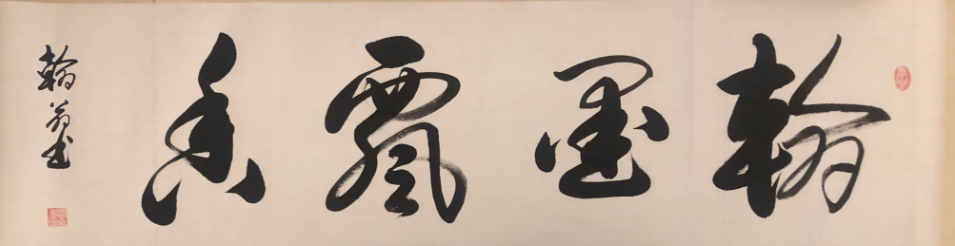 翰墨飘香
翰翁书